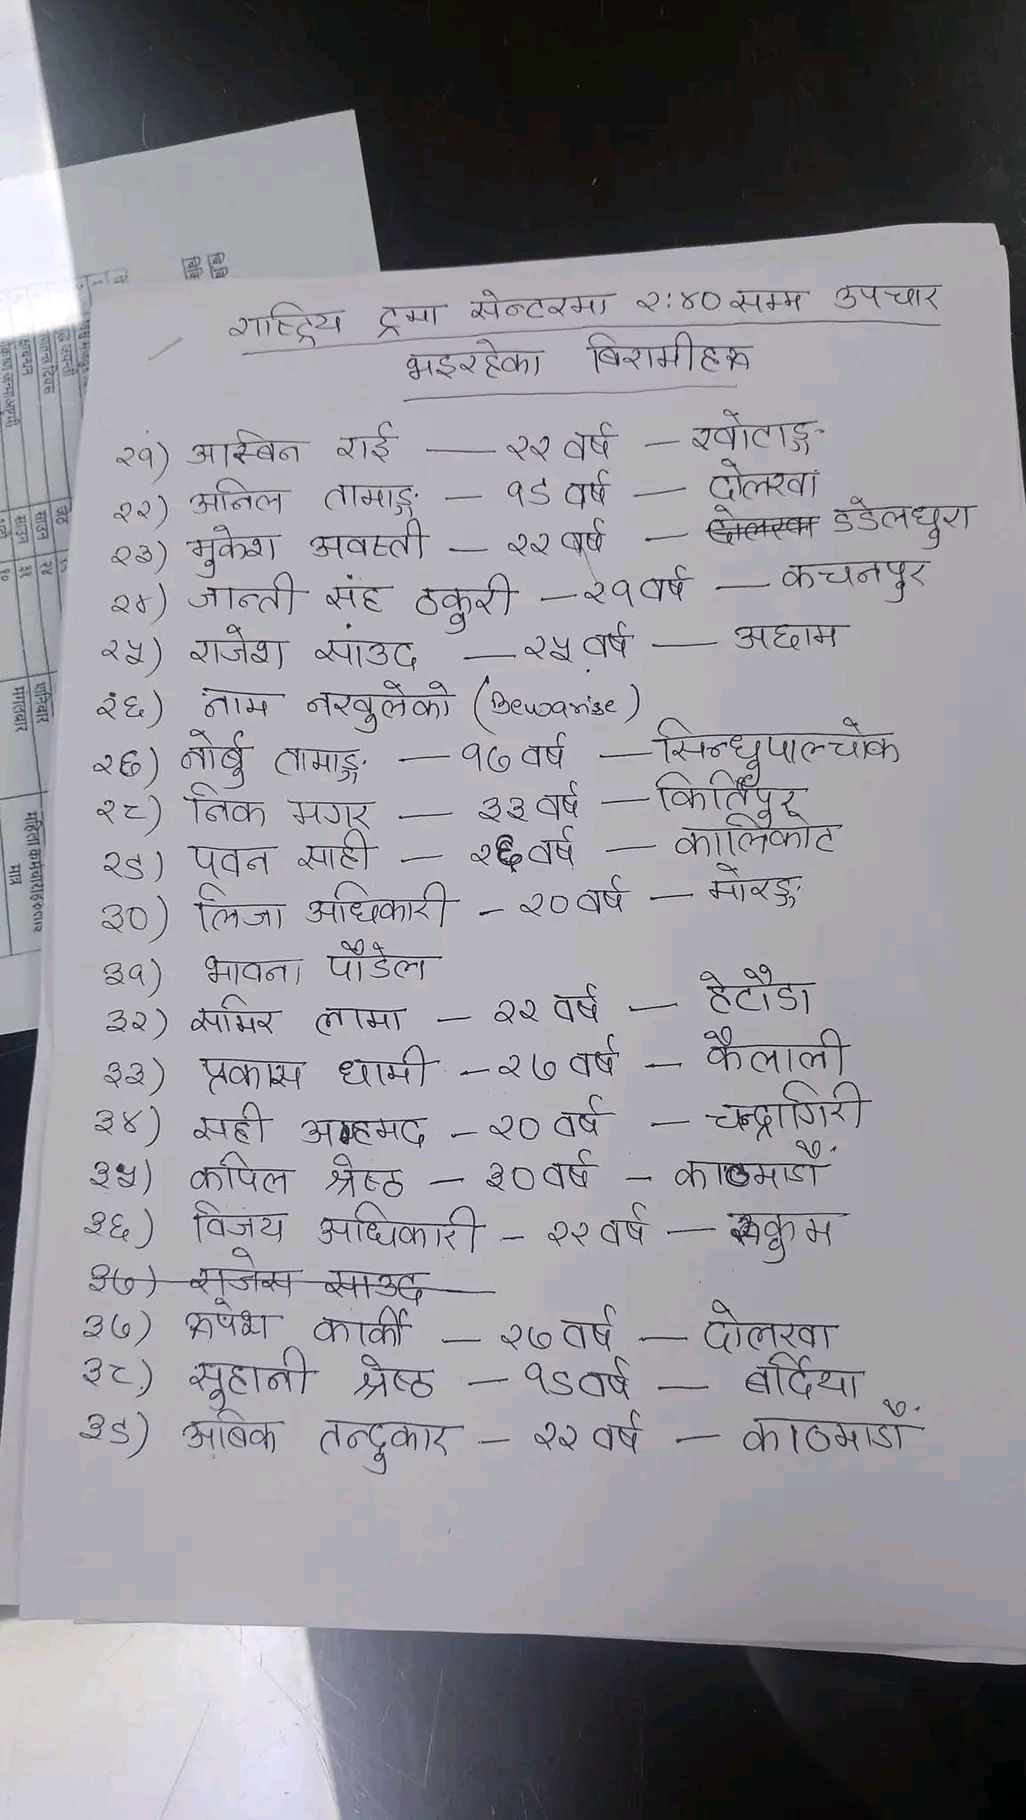 राष्ट्रिय ट्रमा सेन्टरमा २:४० सम्म उपचार
भइरहेका बिरामीहरू
२१) आस्विन राई — २२ वर्ष — खोटाङ्ग
२२) अनिल तामाङ्ग — १९ वर्ष — दोलखा
२३) मुकेश अवस्ती — २२ वर्ष — दोलखा डडेलधुरा
२४) जान्ती संह ठकुरी — २१ वर्ष — कचनपुर
२५) राजेश सांउद — २५ वर्ष — अछाम
२६) नाम नखुलेको (Bewarise)
२७) नोर्बु तामाङ्ग — १७ वर्ष — सिन्धुपाल्चोक
२८) निक मगर — ३३ वर्ष — किर्तिपुर
२९) पवन साही — २६ वर्ष — कालिकोट
३०) लिजा अधिकारी — २० वर्ष — मोरङ्ग
३१) भावना पौडेल
३२) समिर लामा — २२ वर्ष — हेटौडा
३३) प्रकास धामी — २७ वर्ष — कैलाली
३४) सही अहमद — २० वर्ष — चन्द्रागिरी
३५) कपिल श्रेष्ठ — ३० वर्ष — काठमाडौं
३६) विजय अधिकारी — २२ वर्ष — रुकुम
३७) राजेस साउद
३७) रुपेश कार्की — २७ वर्ष — दोलखा
३८) सुहानी श्रेष्ठ — १९ वर्ष — बर्दिया
३९) अबिक तन्दुकार — २२ वर्ष — काठमाडौं